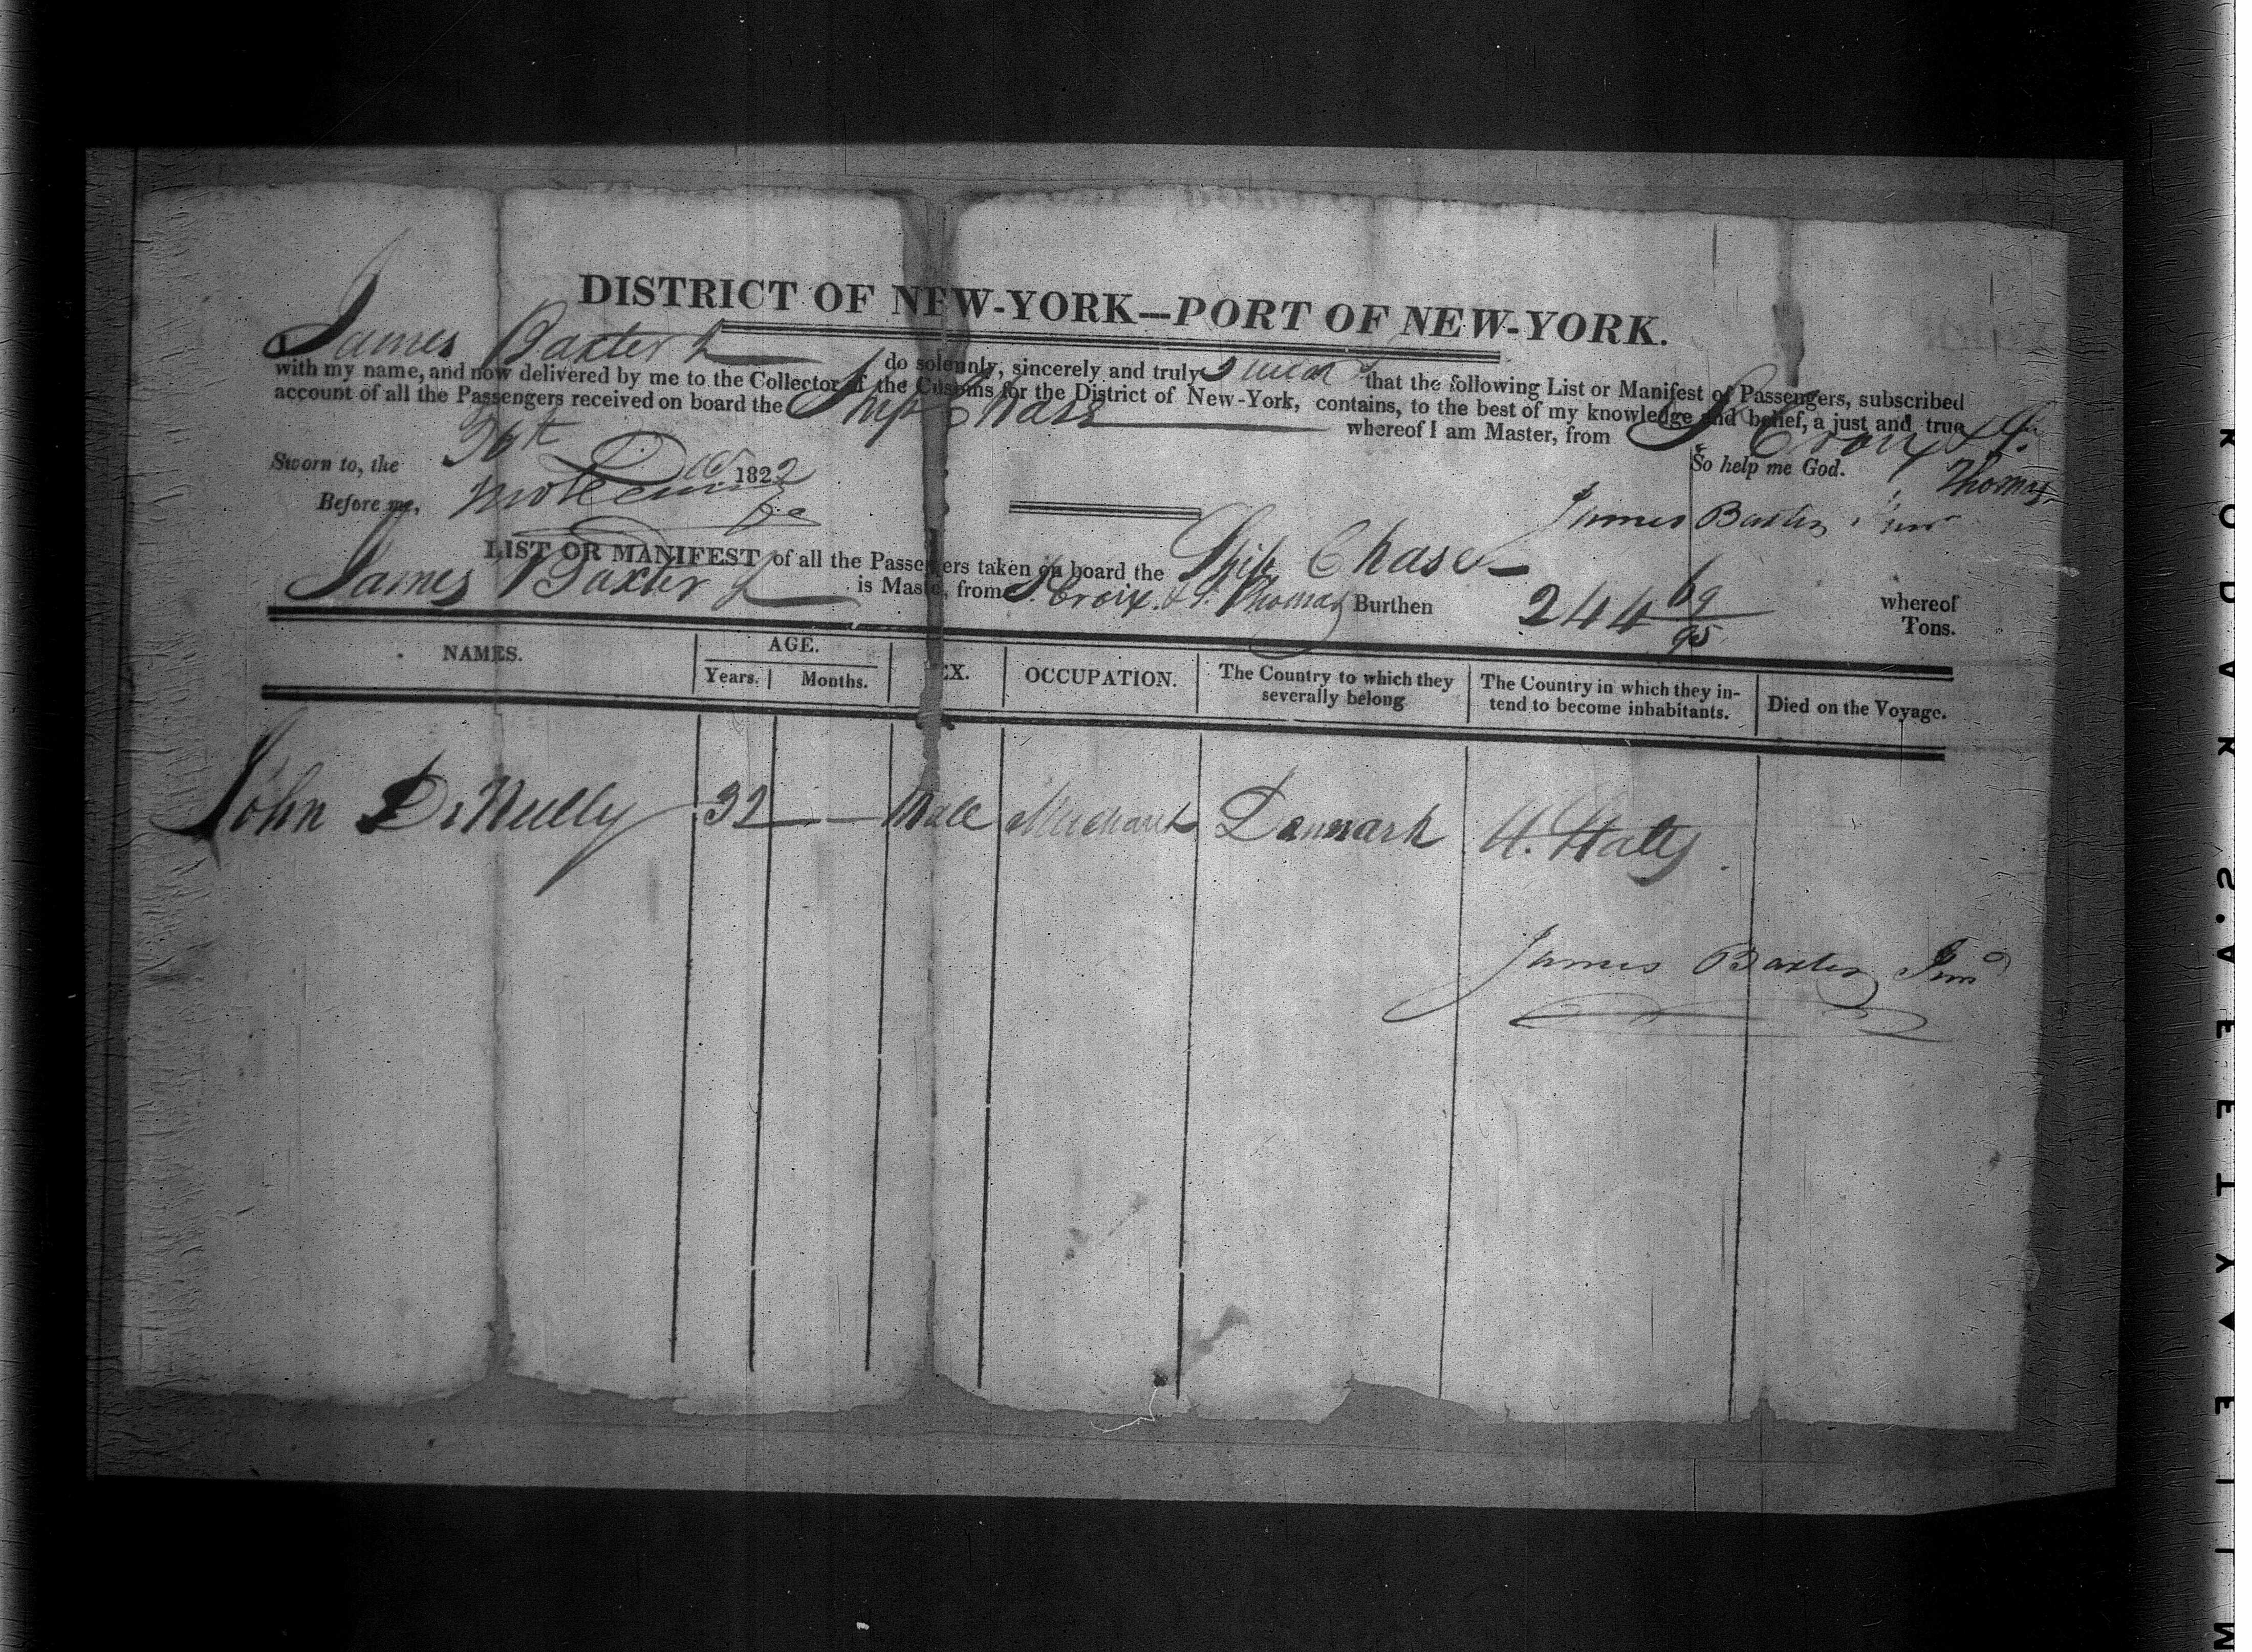 DISTRICT OF NEW-YORK—PORT OF NEW-YORK.
James Baxter do solemnly, sincerely and truly swear that the following List or Manifest of Passengers, subscribed
with my name, and now delivered by me to the Collector of the Customs for the District of New-York, contains, to the best of my knowledge and belief, a just and true
account of all the Passengers received on board the Ship Chase whereof I am Master, from St. Croix & St. Thomas
Sworn to, the 30th Decr 1822 So help me God.
Before me, James Baxter Junr
LIST OR MANIFEST of all the Passengers taken on board the Ship Chase whereof
James Baxter is Master, from St. Croix & St. Thomas Burthen 244 69/95 Tons.
NAMES. AGE. SEX. OCCUPATION. The Country to which they severally belong The Country in which they intend to become inhabitants. Died on the Voyage.
Years. Months.
John DeNully 32 — Male Merchant Danmark U. States
James Baxter Junr
KODAK S.AFETY ▲ FIL M